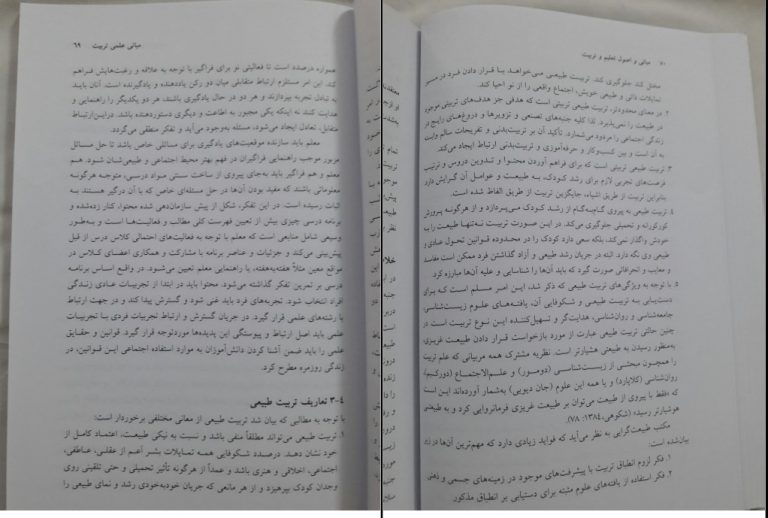 مبانی علمی تربیت ۶۹
همواره درصدد است تا فعالیتی نو برای فراگیر با توجه به علاقه و رغبت‌هایش فراهم
کند. این امر مستلزم ارتباط متقابلی میان دو رکن یاددهنده و یادگیرنده است. آنان باید
به تبادل تجربه بپردازند و هر دو در حال یادگیری باشند، هر دو یکدیگر را راهنمایی و
هدایت کنند نه اینکه یکی مجبور به اطاعت و دیگری دستوردهنده باشد. دراین‌ارتباط
متقابل، تعادل ایجاد می‌شود، مسئله به‌وجود می‌آید و تفکر منطقی می‌گردد.
معلم باید سازنده موقعیت‌های یادگیری برای مسائلی خاص باشد تا حل مسائل
مزبور موجب راهنمایی فراگیران در فهم بهتر محیط اجتماعی و طبیعی‌شان شود. هم
معلم و هم فراگیر باید به‌جای پیروی از ساخت سنتی مواد درسی، متوجه هرگونه
معلوماتی باشند که مفید بودن آن‌ها در حل مسئله‌ای خاص که با آن درگیر هستند، به
اثبات رسیده است. در این تفکر، شکل از پیش سازمان‌دهی شده محتوا، کنار زده‌شده و
برنامه درسی چیزی بیش از تعیین فهرست کلی مطالب و فعالیت‌ها است و به‌طور
وسیعی شامل منابعی است که معلم با توجه به فعالیت‌های احتمالی کلاس درس از قبل
پیش‌بینی می‌کند و جزئیات و عناصر برنامه با مشارکت و همکاری اعضای کلاس در
مواقع معین مثلاً هفته‌به‌هفته، با راهنمایی معلم تعیین می‌شود. در واقع اساس برنامه
درسی بر تمرین تفکر گذاشته می‌شود. محتوا باید در ابتدا از تجربیات عادی زندگی
افراد انتخاب شود. تجربه‌های فرد باید غنی شود و گسترش پیدا کند و در جهت ارتباط
با رشته‌های علمی قرار گیرد. در جریان گسترش و ارتباط تجربیات فردی با تجربیات
علمی باید اصل ارتباط و پیوستگی این پدیده‌ها موردتوجه قرار گیرد. قوانین و حقایق
علمی را باید ضمن آشنا کردن دانش‌آموزان به موارد استفاده اجتماعی این قوانین، در
زندگی روزمره مطرح کرد.
۳-۴ تعاریف تربیت طبیعی
با توجه به مطالبی که بیان شد تربیت طبیعی از معانی مختلفی برخوردار است:
۱. تربیت طبیعی می‌تواند مطلقاً منفی باشد و نسبت به نیکی طبیعت، اعتماد کامل از
خود نشان دهد. درصدد شکوفایی همه تمایلات بشر اعم از عقلی، عاطفی،
اجتماعی، اخلاقی و هنری باشد و عمداً از هرگونه تأثیر تحمیلی و حتی تلقینی روی
وجدان کودک بپرهیزد و از هر مانعی که جریان خودبه‌خودی رشد و نمای طبیعی را
۷۰ مبانی و اصول تعلیم و تربیت
مختل کند جلوگیری کند. تربیت طبیعی می‌خواهد با قرار دادن فرد در مسیر
تمایلات ذاتی و طبیعی خویش، اجتماع واقعی را از نو احیا کند.
۲. در معنای محدودتر، تربیت طبیعی تربیتی است که هدفی جز هدف‌های تربیتی موجود
در طبیعت را نمی‌پذیرد. لذا کلیه جنبه‌های تصنعی و تزویرها و دروغ‌های رایج در
زندگی اجتماعی را مردود می‌شمارد. تأکید آن بر تربیت‌بدنی و تفریحات سالم وابسته
به آن است و بین کسب‌وکار و حرفه‌آموزی و تربیت‌بدنی ارتباط ایجاد می‌کند.
۳. تربیت طبیعی تربیتی است که برای فراهم آوردن محتوا و تدوین دروس و ترتیب
فرصت‌های تجربی لازم برای رشد کودک، به طبیعت و عوامل آن گرایش دارد
بنابراین تربیت از طریق اشیاء، جایگزین تربیت از طریق الفاظ شده است.
۴. تربیت طبیعی به پیروی گام‌به‌گام از رشد کودک می‌پردازد و از هرگونه پرورش
کورکورانه و تحمیلی جلوگیری می‌کند. در این صورت تربیت نه‌تنها طبیعت را به
خودش واگذار نمی‌کند، بلکه سعی دارد کودک را در محدوده قوانین تحول عادی و
طبیعی وی نگه دارد. البته در جریان رشد طبیعی و آزاد گذاشتن فرد ممکن است مفاسد
و معایب و انحرافاتی صورت گیرد که باید آن‌ها را شناسایی و علیه آن‌ها مبارزه کرد.
۵. با توجه به ویژگی‌های تربیت طبیعی که ذکر شد، این امر مسلم است که برای
دست‌یابی به تربیت طبیعی و شکوفایی آن، یافته‌های علوم زیست‌شناسی،
جامعه‌شناسی و روان‌شناسی، هدایت‌گر و تسهیل‌کننده این نوع تربیت است در
چنین حالتی تربیت طبیعی عبارت از مورد بازخواست قرار دادن طبیعت غریزی،
به‌منظور رسیدن به طبیعتی هشیارتر است. نظریه مشترک همه مربیانی که علم تربیت
را همچون مبحثی از زیست‌شناسی (دومور) و علم‌الاجتماع (دورکیم)،
روان‌شناسی (کلاپارد) و یا همه این علوم (جان دیویی) به‌شمار آورده‌اند این است
که «فقط با پیروی از طبیعت می‌توان بر طبیعت غریزی فرمانروایی کرد و به طبیعتی
هوشیارتر رسید» (شکوهی، ۱۳۸۴: ۷۸).
مکتب طبیعت‌گرایی به نظر می‌آید که فواید زیادی دارد که مهم‌ترین آن‌ها در زیر
بیان‌شده است:
۱. فکر لزوم انطباق تربیت با پیشرفت‌های موجود در زمینه‌های جسمی و ذهنی
۲. فکر استفاده از یافته‌های علوم مثبته برای دستیابی بر انطباق مذکور